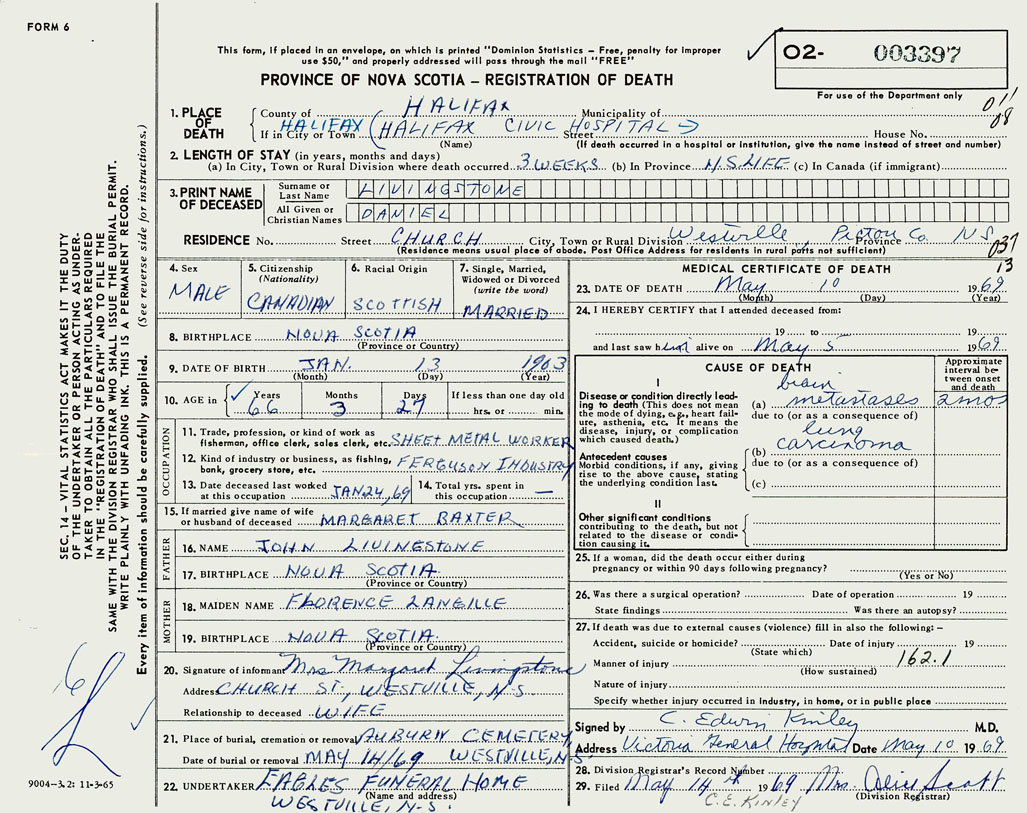 FORM 6
This form, if placed in an envelope, on which is printed "Dominion Statistics – Free, penalty for improper
use $50," and properly addressed will pass through the mail "FREE"
PROVINCE OF NOVA SCOTIA – REGISTRATION OF DEATH
O2- 003397
For use of the Department only
011
08
1. PLACE OF DEATH
County of HALIFAX Municipality of
If in City or Town HALIFAX (HALIFAX CIVIC HOSPITAL → Street House No.
(Name) (If death occurred in a hospital or institution, give the name instead of street and number)
2. LENGTH OF STAY (in years, months and days)
(a) In City, Town or Rural Division where death occurred 3 WEEKS (b) In Province N.S. LIFE (c) In Canada (if immigrant)
3. PRINT NAME OF DECEASED
Surname or Last Name LIVINGSTONE
All Given or Christian Names DANIEL
RESIDENCE No. Street CHURCH City, Town or Rural Division Westville, Pictou Co. Province NS
(Residence means usual place of abode. Post Office Address for residents in rural parts not sufficient)
037
13
4. Sex MALE
5. Citizenship (Nationality) CANADIAN
6. Racial Origin SCOTTISH
7. Single, Married, Widowed or Divorced (write the word) MARRIED
8. BIRTHPLACE NOVA SCOTIA
(Province or Country)
9. DATE OF BIRTH JAN. 13 1903
(Month) (Day) (Year)
10. AGE in Years 66 Months 3 Days 27 If less than one day old
hrs. or min.
OCCUPATION
11. Trade, profession, or kind of work as
fisherman, office clerk, sales clerk, etc. SHEET METAL WORKER
12. Kind of industry or business, as fishing,
bank, grocery store, etc. FERGUSON INDUSTRY
13. Date deceased last worked
at this occupation JAN 24, 69
14. Total yrs. spent in
this occupation —
15. If married give name of wife
or husband of deceased MARGARET BAXTER
FATHER
16. NAME JOHN LIVINGSTONE
17. BIRTHPLACE NOVA SCOTIA.
(Province or Country)
MOTHER
18. MAIDEN NAME FLORENCE LANGILLE
19. BIRTHPLACE NOVA SCOTIA.
(Province or Country)
20. Signature of informant Mrs Margaret Livingstone
Address CHURCH ST., WESTVILLE, N-S.
Relationship to deceased WIFE
21. Place of burial, cremation or removal AUBURN CEMETERY,
Date of burial or removal MAY 14/69 WESTVILLE, N-S.
22. UNDERTAKER EAGLES FUNERAL HOME
(Name and address)
WESTVILLE, N-S.
MEDICAL CERTIFICATE OF DEATH
23. DATE OF DEATH May 10 1969
(Month) (Day) (Year)
24. I HEREBY CERTIFY that I attended deceased from:
19 to 19
and last saw him alive on May 5 1969
CAUSE OF DEATH
Approximate interval between onset and death
I
Disease or condition directly leading
to death (This does not mean
the mode of dying, e.g., heart failure,
asthenia, etc. It means the
disease, injury, or complication
which caused death.)
(a) brain metastases 2 mos
due to (or as a consequence of)
Antecedent causes
Morbid conditions, if any, giving
rise to the above cause, stating
the underlying condition last.
(b) lung carcinoma
due to (or as a consequence of)
(c)
II
Other significant conditions
contributing to the death, but not
related to the disease or condition
causing it.
25. If a woman, did the death occur either during
pregnancy or within 90 days following pregnancy?
(Yes or No)
26. Was there a surgical operation? Date of operation 19
State findings Was there an autopsy?
27. If death was due to external causes (violence) fill in also the following: –
Accident, suicide or homicide? Date of injury 19
(State which)
Manner of injury 162.1
(How sustained)
Nature of injury
Specify whether injury occurred in industry, in home, or in public place
Signed by C. Edwin Kinley M.D.
Address Victoria General Hospital Date May 10 1969
28. Division Registrar's Record Number
29. Filed May 14th 1969 Mrs. Alice Scott
(Division Registrar)
C.E. KINLEY
SEC. 14 – VITAL STATISTICS ACT MAKES IT THE DUTY
OF THE UNDERTAKER OR PERSON ACTING AS UNDER-
TAKER TO OBTAIN ALL THE PARTICULARS REQUIRED
IN THE "REGISTRATION OF DEATH" AND TO FILE THE
SAME WITH THE DIVISION REGISTRAR WHO SHALL ISSUE THE BURIAL PERMIT.
WRITE PLAINLY WITH UNFADING INK. THIS IS A PERMANENT RECORD.
Every item of information should be carefully supplied. (See reverse side for instructions.)
9004-3.2: 11-3-65